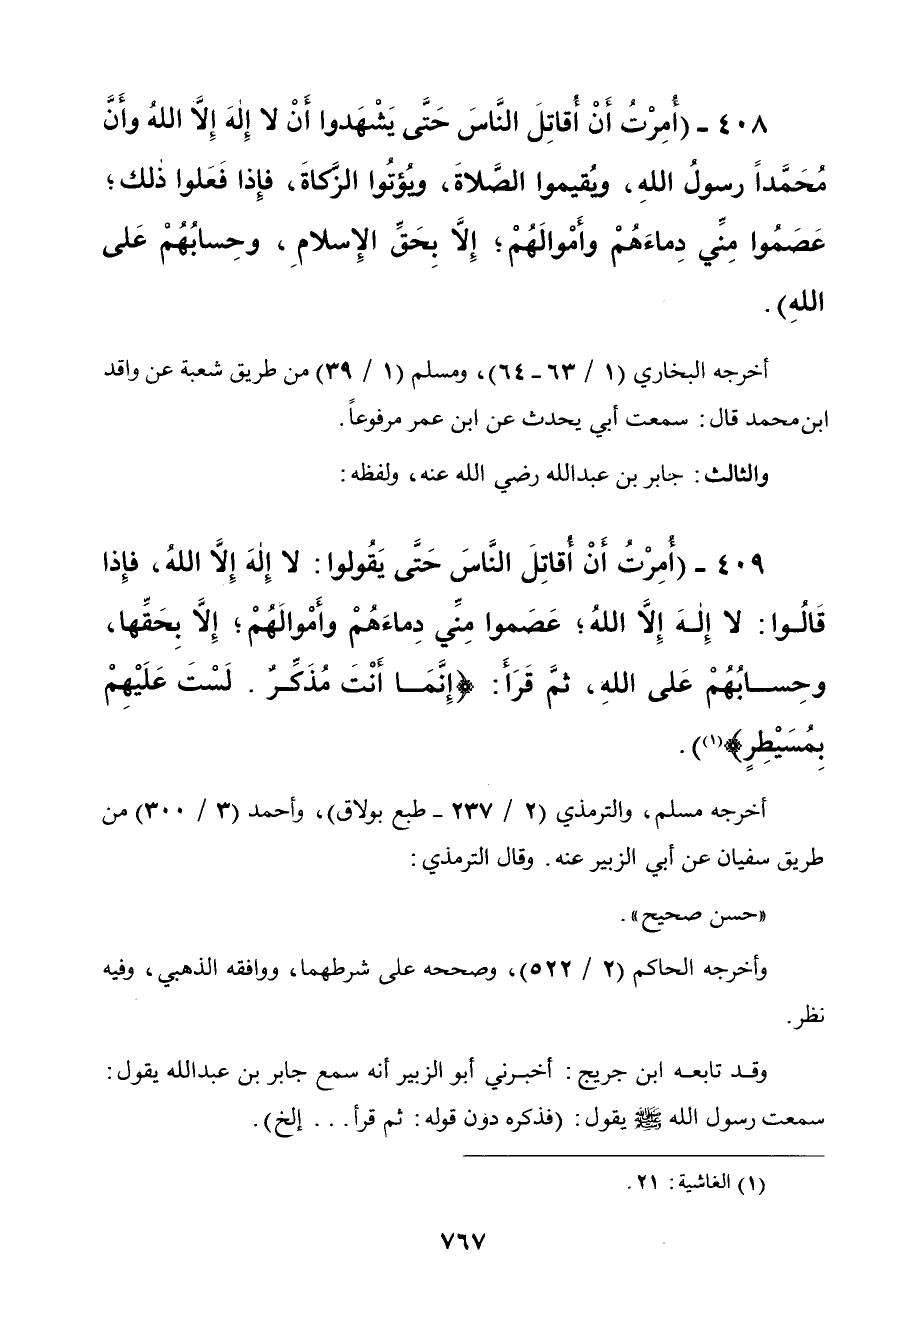 ٤٠٨ - (أُمِرْتُ أَنْ أُقاتِلَ النَّاسَ حَتَّى يَشْهَدوا أَنْ لا إِلٰهَ إِلَّا اللهُ وأَنَّ
مُحَمَّداً رسولُ اللهِ، ويُقيموا الصَّلاةَ، ويُؤتُوا الزَّكاةَ، فإِذا فَعَلوا ذٰلك؛
عَصَمُوا مِنِّي دِماءَهُمْ وأَمْوالَهُمْ؛ إِلَّا بِحَقِّ الإِسلامِ، وحِسابُهُمْ عَلى
اللهِ).
أخرجه البخاري (١ / ٦٣ - ٦٤)، ومسلم (١ / ٣٩) من طريق شعبة عن واقد
ابن محمد قال: سمعت أبي يحدث عن ابن عمر مرفوعاً.
والثالث: جابر بن عبدالله رضي الله عنه، ولفظه:
٤٠٩ - (أُمِرْتُ أَنْ أُقاتِلَ النَّاسَ حَتَّى يَقُولوا: لا إِلٰهَ إِلَّا اللهُ، فإِذا
قَالُـوا: لا إِلٰـهَ إِلَّا اللهُ؛ عَصَموا مِنِّي دِماءَهُمْ وأَمْوالَهُمْ؛ إِلَّا بِحَقِّها،
وحِسـابُهُمْ عَلى اللهِ، ثمَّ قَرَأَ: ﴿إِنَّمَـا أَنْتَ مُذَكِّـرٌ . لَسْتَ عَلَيْهِمْ
بِمُسَيْطِرٍ﴾(١)).
أخرجه مسلم، والترمذي (٢ / ٢٣٧ - طبع بولاق)، وأحمد (٣ / ٣٠٠) من
طريق سفيان عن أبي الزبير عنه. وقال الترمذي:
«حسن صحيح».
وأخرجه الحاكم (٢ / ٥٢٢)، وصححه على شرطهما، ووافقه الذهبي، وفيه
نظر.
وقـد تابعـه ابن جريج: أخبـرني أبو الزبير أنه سمع جابر بن عبدالله يقول:
سمعت رسول الله ﷺ يقول: (فذكره دون قوله: ثم قرأ... إلخ).
(١) الغاشية: ٢١.
٧٦٧